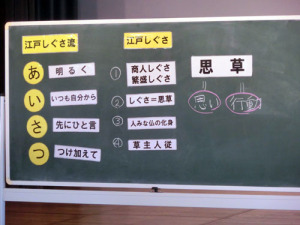 江戸しぐさ流
あ 明るく
い いつも自分から
さ 先にひと言
つ つけ加えて
江戸しぐさ
① 商人しぐさ
繁盛しぐさ
② しぐさ＝思草
③ 人みな仏の化身
④ 草主人従
思草
思い 行動